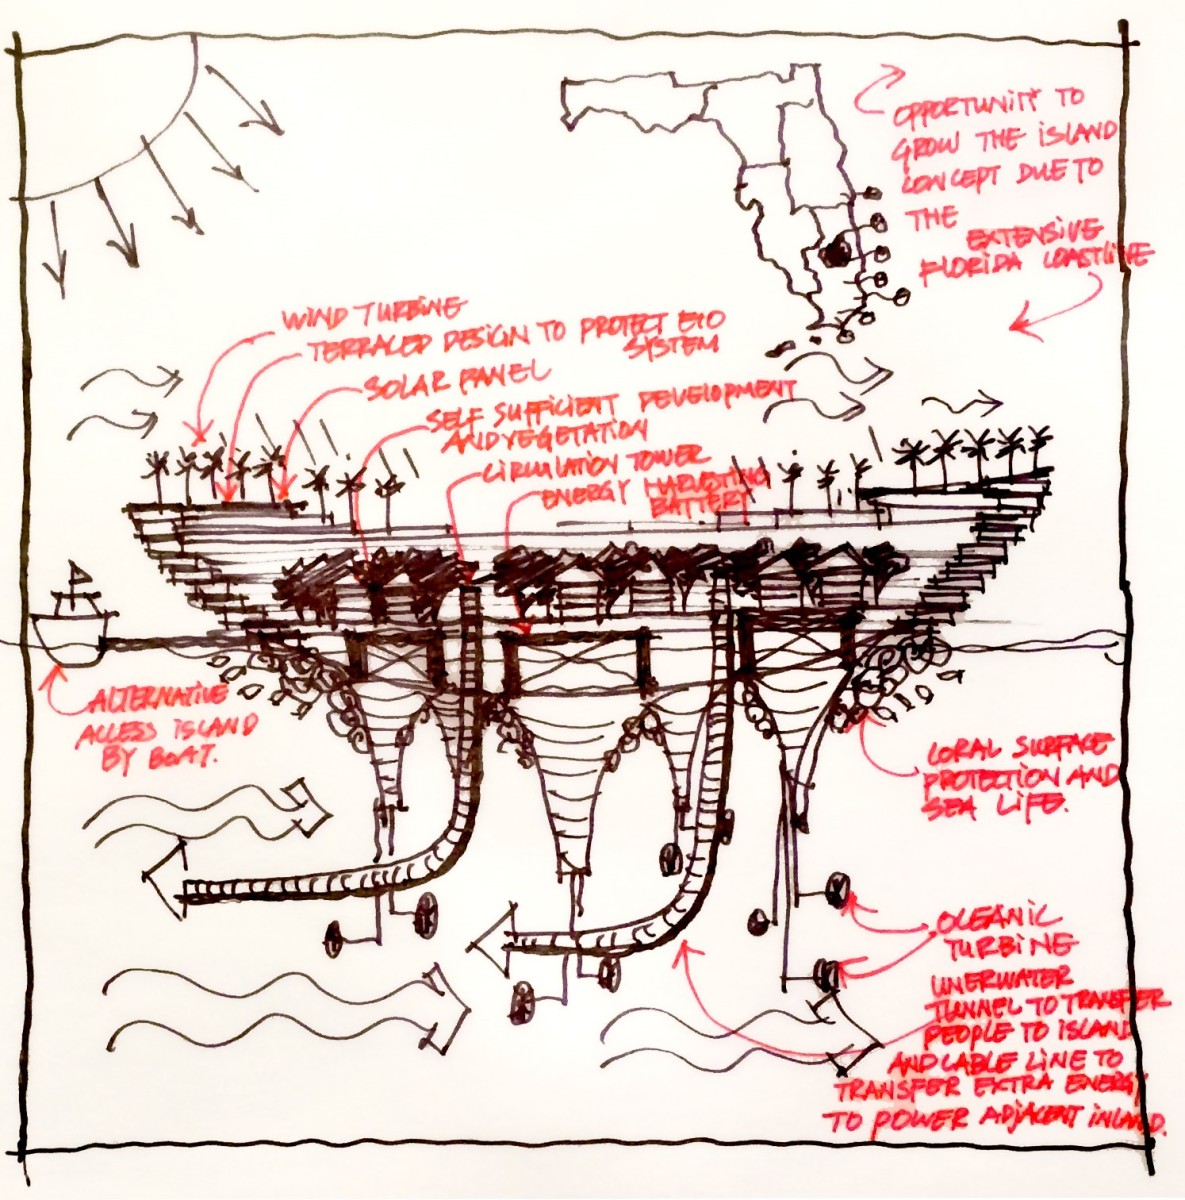 OPPORTUNITY TO
GROW THE ISLAND
CONCEPT DUE TO
THE
EXTENSIVE
FLORIDA COASTLINE
WIND TURBINE
TERRACED DESIGN TO PROTECT ECO
SYSTEM
SOLAR PANEL
SELF SUFFICIENT DEVELOPMENT
AND VEGETATION
CIRCULATION TOWER
ENERGY HARVESTING
BATTERY
ALTERNATIVE
ACCESS ISLAND
BY BOAT.
CORAL SURFACE
PROTECTION AND
SEA LIFE.
OCEANIC
TURBINE
UNERWATER
TUNNEL TO TRANSFER
PEOPLE TO ISLAND
AND CABLE LINE TO
TRANSFER EXTRA ENERGY
TO POWER ADJACENT INLAND.